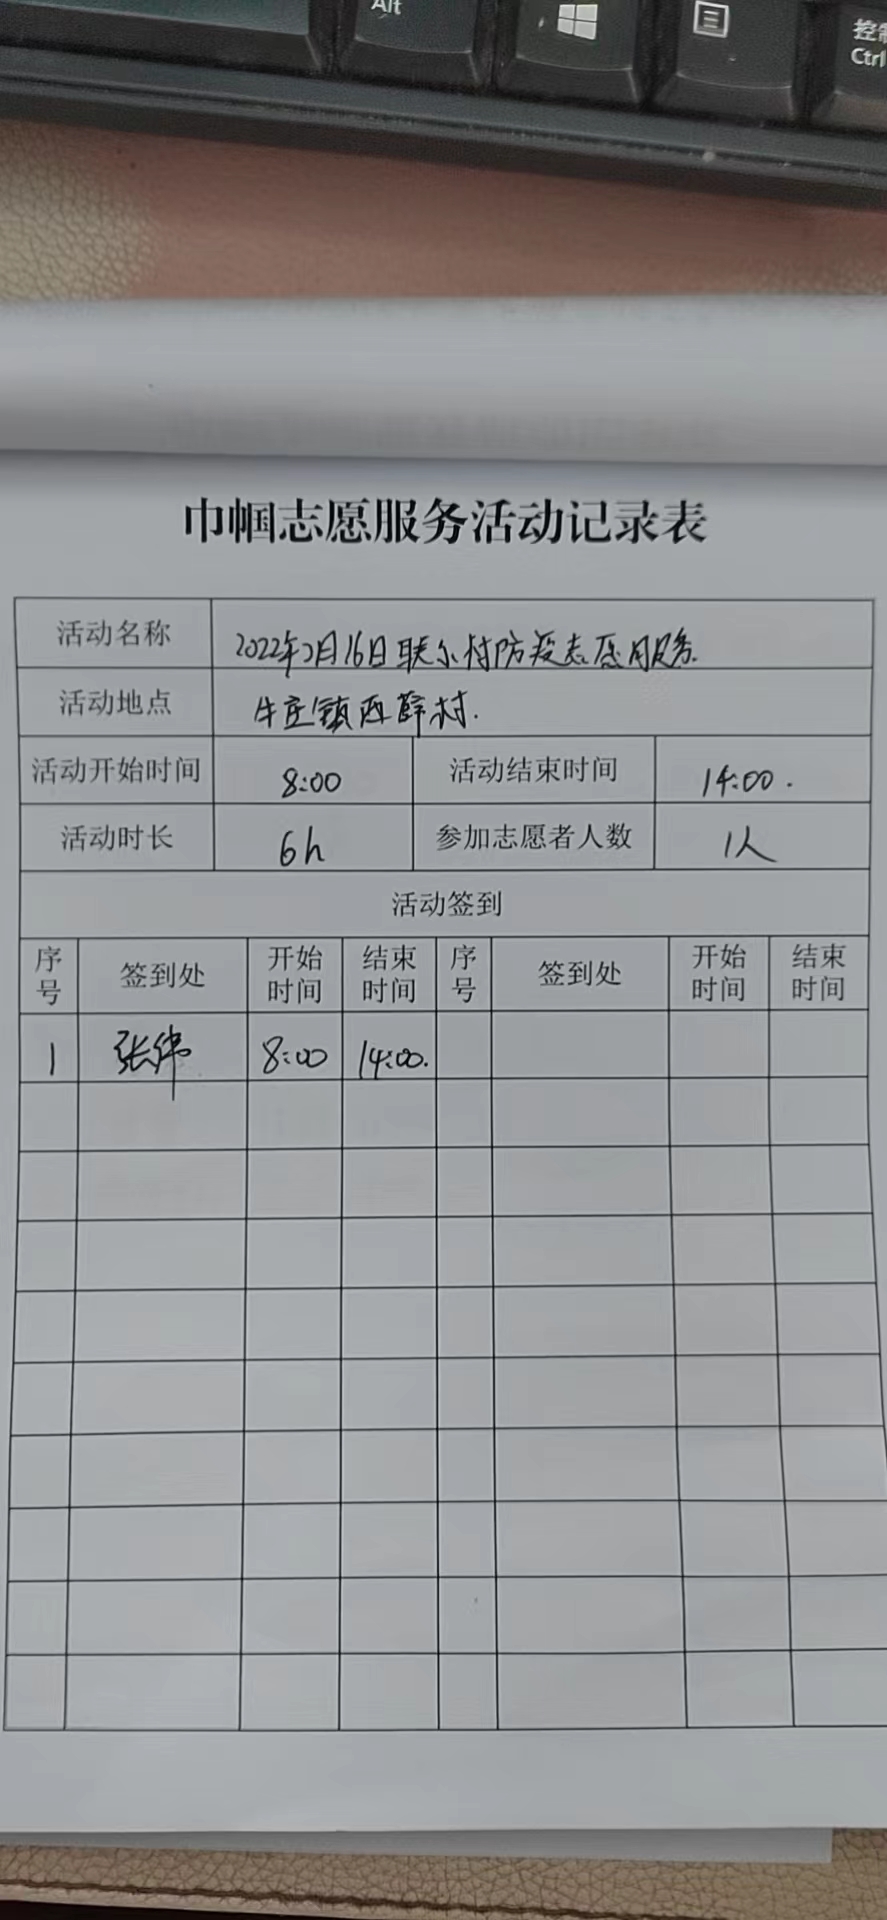 Alt
控制
Ctrl
巾帼志愿服务活动记录表
活动名称 2022年3月16日联东村防疫志愿服务
活动地点 牛庄镇西薛村.
活动开始时间 8:00 活动结束时间 14:00.
活动时长 6h 参加志愿者人数 1人
活动签到
序号 签到处 开始时间 结束时间 序号 签到处 开始时间 结束时间
1 张伟 8:00 14:00.